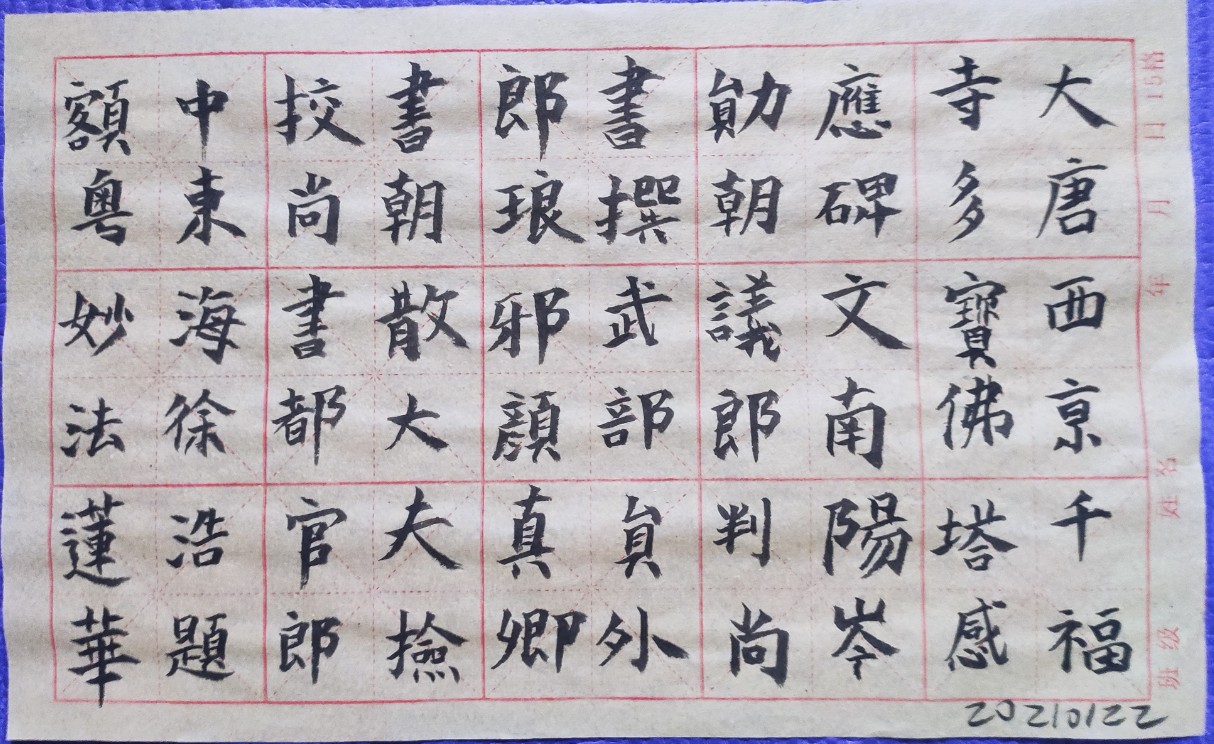 大唐西亰千福
寺多寶佛塔感
應碑文南陽岑
勛朝議郎判尚
書撰武部員外
郎琅邪顏真卿
書朝散大夫撿
挍尚書都官郎
中東海徐浩題
額粵妙法蓮華
班级 姓名 年 月 日 15格
20210122